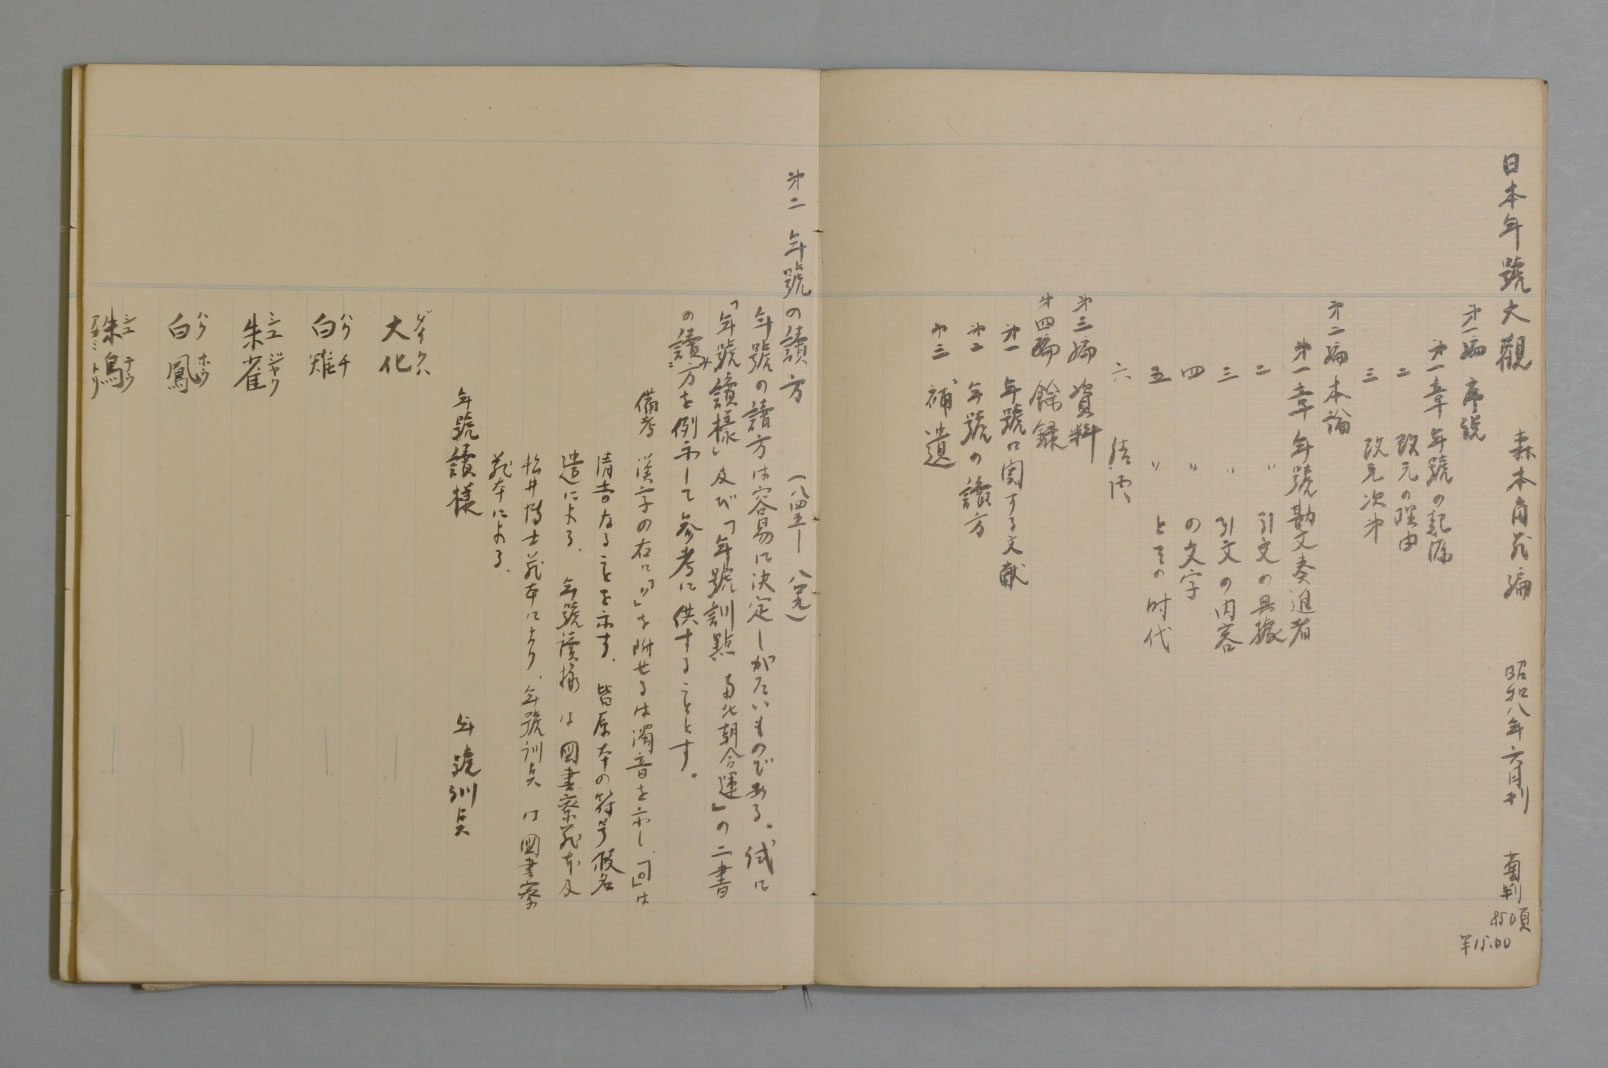 日本年號大觀　森本角蔵編　昭和八年六月刊　菊判
850頁
¥15.00
第一編　序説
第一章　年號の起源
二　改元の理由
三　改元次第
第二編　本論
第一章　年號勘文奏進者
二　〃　引文の典據
三　〃　引文の内容
四　〃　の文字
五　〃　とその時代
六　結語
第三編　資料
第四編　餘録
第一　年號に関する文献
第二　年號の讀方
第三　補遺
第二　年號の讀方　（八四五—八四九）
年號の讀方は容易に決定しがたいものである。試に
「年號讀様」及び「年號訓點　南北朝合運」の二書
の讀み方を例示して参考に供することとす。
備考　漢字の右に「〃」を附せるは濁音を示し、「○」は
清音なることを示す、皆原本の符号假名
遣による、年號讀様は図書寮蔵本及
松井博士蔵本により、年號訓点は図書寮
蔵本による、
年號讀様　年號訓点
大化　ダイクハ
白雉　ハクチ
朱雀　シユジヤク
白鳳　ハクホウ
朱鳥　シユテウ